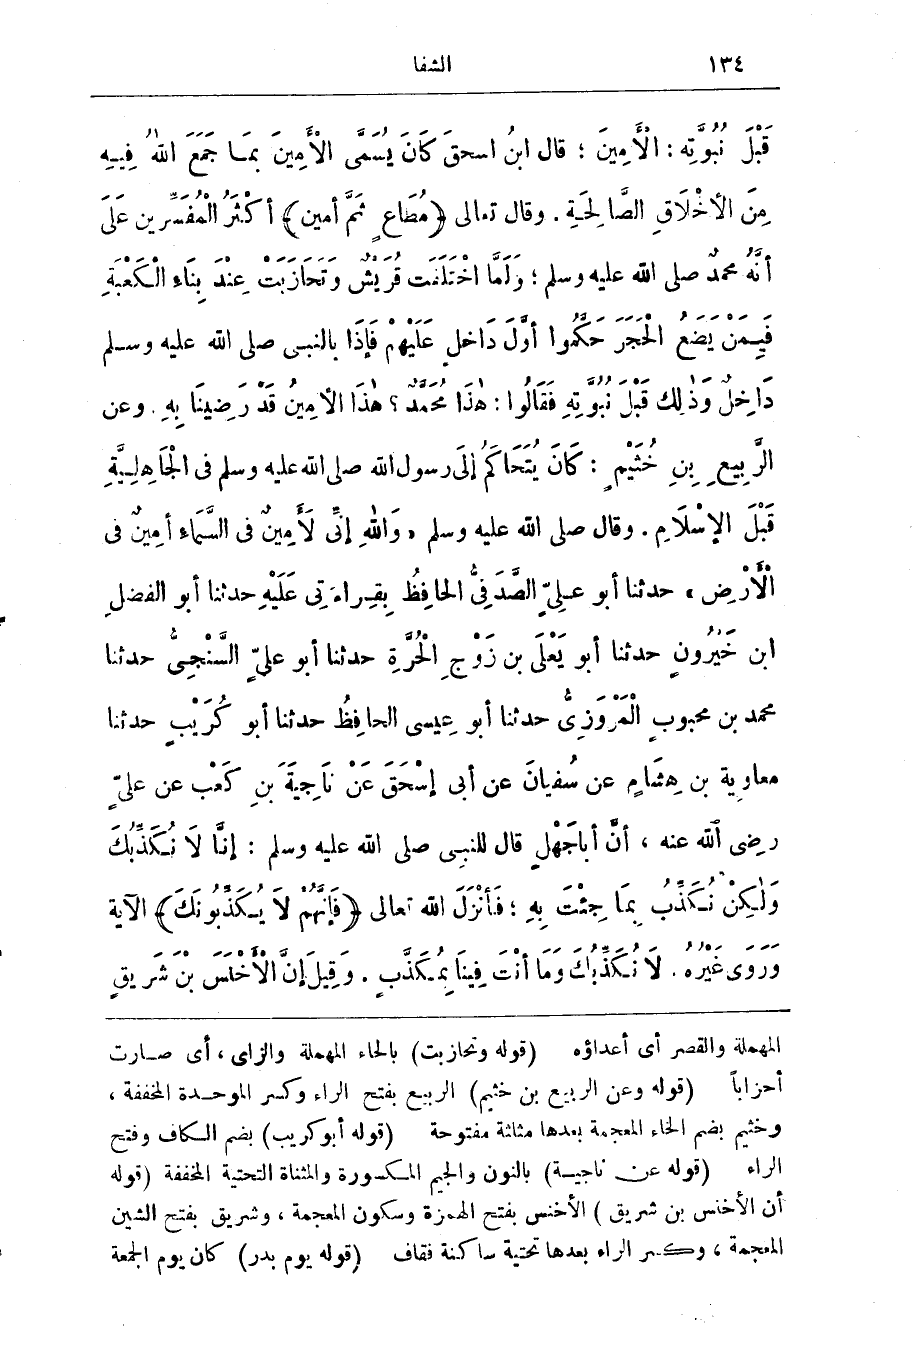 ١٣٤
الشفا
قَبْلَ نُبُوَّتِهِ : الْأَمِينَ ؛ قال ابنُ اسحقَ كَانَ يُسَمَّى الأَمِينَ بِمَا جَمَعَ اللهُ فِيهِ
مِنَ الأَخْلَاقِ الصَّالِحَةِ . وقال تعالى ﴿مُطَاعٍ ثَمَّ أمين﴾ أكْثَرُ الْمُفَسِّرِين عَلَى
أنَّهُ محمدٌ صلى الله عليه وسلم ؛ وَلَمَّا اخْتَلَفَت قُرَيْشٌ وَتَحَازَبَتْ عِنْدَ بِنَاءِ الْكَعْبَةِ
فَيِمَنْ يَضَعُ الْحَجَرَ حَكَّمُوا أوَّلَ دَاخِلٍ عَلَيْهِمْ فَإذَا بالنبى صلى الله عليه وسلم
دَاخِلٌ وَذٰلِكَ قَبْلَ نُبُوَّتِهِ فَقَالُوا : هٰذَا مُحَمَّدٌ ؟ هٰذَا الأَمِينُ قَدْ رَضِينَا بِهِ . وعن
الرَّبِيعِ بِنِ خُثَيْمٍ : كَانَ يُتَحَاكَمُ إلَى رسول الله صلى الله عليه وسلم فى الْجَاهِلِيَّةِ
قَبْلَ الإِسْلَامِ . وقال صلى الله عليه وسلم « وَاللهِ إنِّى لَأَمِينٌ فى السَّمَاءِ أمِينٌ فى
الْأَرْضِ » حدثنا أبو علىّ الصَّدَفِىُّ الحَافِظُ بِقِراءَتِى عَلَيْهِ حدثنا أبو الفضلِ
ابن خَيْرُونٍ حدثنا أبو يَعْلَى بن زَوْجِ الْحُرَّةِ حدثنا أبو علىّ السِّنْجِىُّ حدثنا
محمد بن محبوبٍ الْمَرْوَزِىُّ حدثنا أبو عِيسى الحافِظُ حدثنا أبو كُرَيْبٍ حدثنا
معاوِية بن هِشَامٍ عن سُفيانَ عن أبى إسْحٰقَ عَنْ نَاجِيَةَ بنِ كَعْب عن علىّ
رضى الله عنه ، أنَّ أباجَهْلٍ قال للنبى صلى الله عليه وسلم : إنَّا لَا نُكَذِّبُكَ
وَلٰكِنْ نُكَذِّبُ بِمَا جِئْتَ بِهِ ؛ فَأنْزَلَ الله تعالى ﴿فَإنَّهُمْ لَا يُكَذِّبُونَكَ﴾ الآية
وَرَوَى غَيْرُهُ . لَا نُكَذِّبُكَ وَمَا أنْتَ فِينَا بِمُكَذَّبٍ . وَقِيلَ إنَّ الْأَخْنَسَ بْنَ شَرِيقٍ
المهملة والقصر أى أعداؤه (قوله وتحازبت) بالحاء المهملة والزاى ، أى صارت
أحزاباً (قوله وعن الربيع بن خثيم) الربيع بفتح الراء وكسر الموحدة المخففة ،
وخثيم بضم الخاء المعجمة بعدها مثلثة مفتوحة (قوله أبوكريب) بضم الكاف وفتح
الراء (قوله عن ناجية) بالنون والجيم المكسورة والمثناة التحتية المخففة (قوله
أن الأخنس بن شريق ) الأخنس بفتح الهمزة وسكون المعجمة ، وشريق بفتح الشين
المعجمة ، وكسر الراء بعدها تحتية ساكنة فقاف (قوله يوم بدر) كان يوم الجمعة